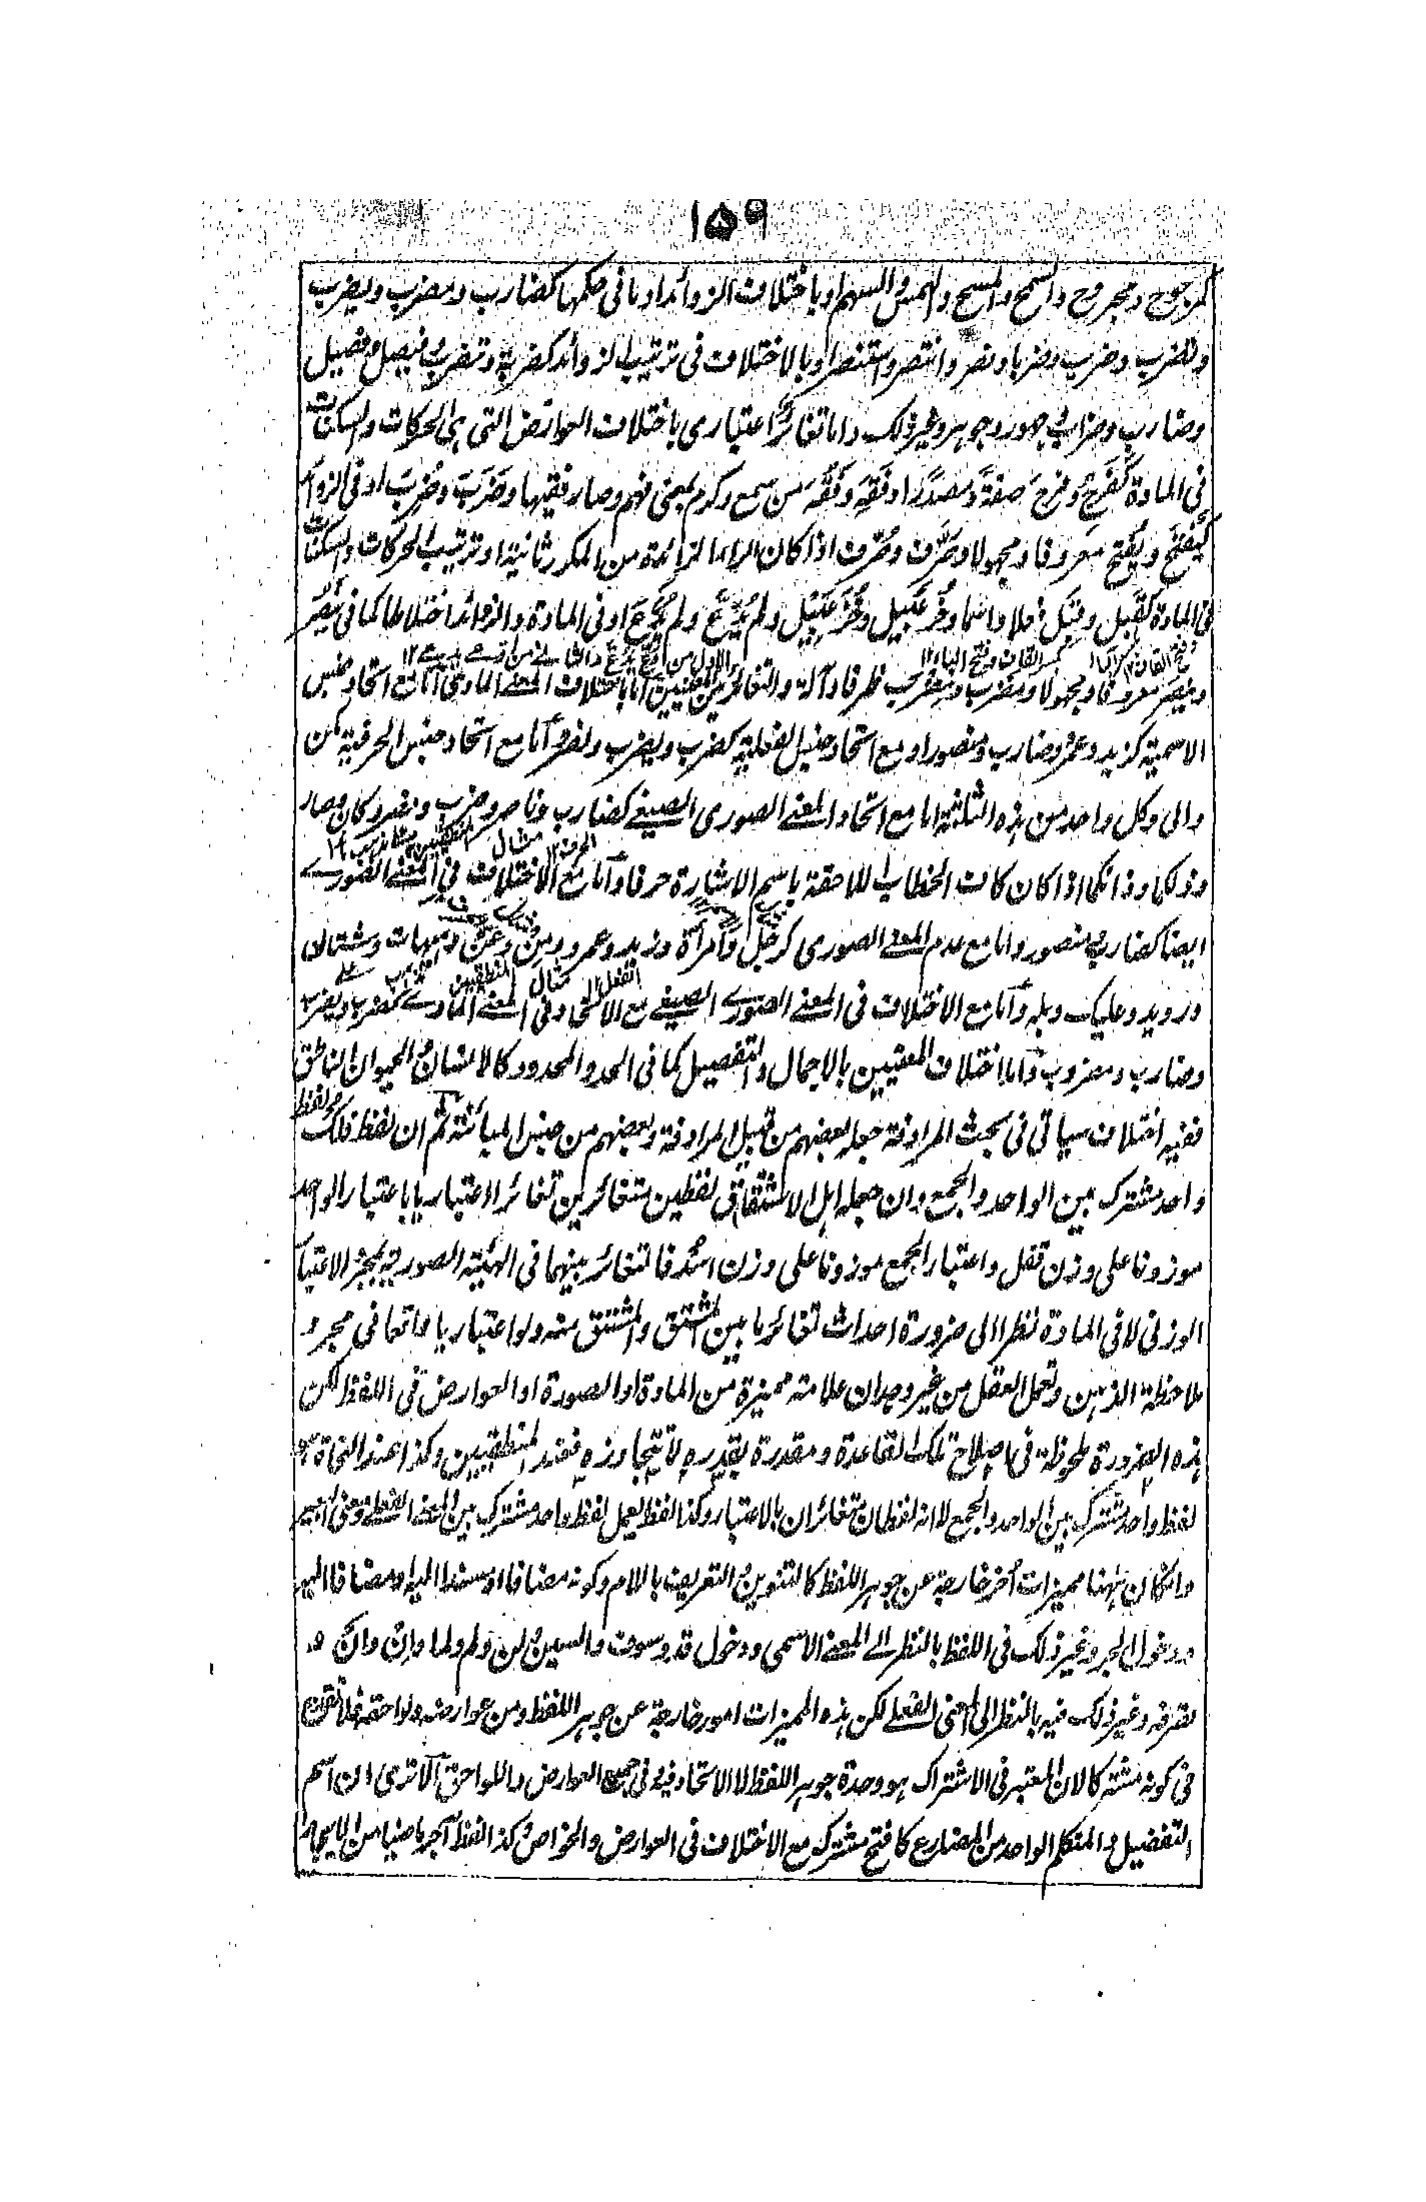 ١٥٩
كمرجوح ومجروح والسمح والمسح والهمس والسهم او باختلاف الزوائد او ما فى حكمها كضارب ومضرب ويضرب
وتضرب وضرب وضربا ونصر وانتصر واستنصر او بالاختلاف فى ترتيب الزوائد كضربة وتضرب فيصل وفصيل
وضارب وضراب جهور وجوهر وغير ذلك واما تغائرًا اعتباريا باختلاف العوارض التى هى الحركات والسكنات
فى المادة كفَرِحٌ وفرح صفةً ومصدرًا او فَقِهَ وفَقُهَ من سمع وكرم بمعنى فهم وصار فقيها وضَرَبَ وضُرِبَ او فى الزوائد
كيَفتَح ويُفتَح معروفا ومجهولا وصَرَّف وصُرِّف اذا كان الراء الزائدة من المكرر ثانية او ترتيب الحركات والسكنات
فى المادة كقَبِل وقَبل فعلا واسما وخُزَعبيل وخُزَعبيل ولم ولم او فى المادة والزوائد اختلاطا كما فى
فتح القاف كسر القاف وفتح الباء ١٢ الاول من والثانى من ١٢
وينصر معروفا ومجهولا ومضرب ومضرب ظرفا وآلة والتغائر بين المعنيين اما باختلاف المعنى المادى اما مع اتحاد جنس
الاسمية كزيد وعمرو ضارب ومنصور او مع اتحاد جنس الفعلية كضرب ويضرب ونصر واما مع اتحاد جنس الحرفية كمن
والى وكل واحد من هذه الثلثة اما مع اتحاد المعنى الصورى الصيغى كضارب وناصر وضرب ونصر وكان وصار
الحرف ١٢ مثال المنطقيين
وذلكما وذانكما اذا كان كاف الخطاب اللاحقة باسم الاشارة حرفا واما مع الاختلاف فى المعنى الصورى
ايضا كضارب منصور واما مع عدم المعنى الصورى كرجل وامرأة وزيد وعمرو ومِن وعن وهيهات وشتان
الفعل ١٢ مثال المنطقيين
ورويد وعليك وبله واما مع الاختلاف فى المعنى الصورى الصيغى مع الاتحاد فى المعنى المادى كضرب ويضرب
وضارب ومضروب واما اختلاف المعنيين بالاجمال والتفصيل كما فى الحد والمحدود كالانسان والحيوان الناطق
ففيه اختلاف سيأتى فى بحث المرادفة جعله بعضهم من قبيل المرادفة وبعضهم من جنس المبائنة ثم ان لفظ فلك هو لفظ
واحد مشترك بين الواحد والجمع وان جعله اهل الاشتقاق لفظين متغائرين تغائرا اعتباريا باعتبار الواحد
موزونا على وزن قفل واعتبار الجمع موزونا على وزن اسد فالتغائر بينهما فى الهيئة الصورية بمجرد الاعتبار
الوزنى لا فى المادة نظرا الى ضرورة احداث تغائر ما بين المشتق والمشتق منه ولو اعتباريا واقعا فى مجرد
ملاحظة الذهن وتعمل العقل من غير وجدان علامة مميزة من المادة او الصورة او العوارض فى اللفظ لكن
هذه الضرورة ملحوظة فى اصلاح تلك القاعدة ومقدرة بقدره لا تتجاوزه فعند المنطقيين وكذا عند النحاة هو
لفظ واحد مشترك بين الواحد والجمع لا انه لفظان متغائران بالاعتبار وكذا لفظ يعمل لفظ واحد مشترك بين المعنى الفعلى
وان كان ههنا مميزات اُخر خارجة عن جوهر اللفظ كالتنوين والتعريف باللام وكونه مضافا او مسندا اليه او مضافا اليه
ودخول الجر وغير ذلك فى اللفظ بالنظر الى المعنى الاسمى ودخول قد وسوف والسين ولن ولم ولما وان وان
تصرفه وغير ذلك فيه بالنظر الى المعنى الفعلى لكن هذه المميزات امور خارجة عن جوهر اللفظ ومن عوارضه ولواحقه فلا تقدح
فى كونه مشتركا لان المعتبر فى الاشتراك هو وحدة جوهر اللفظ لا الاتحاد فيه فى جميع العوارض واللواحق الا ترى ان اسم
التفضيل والمتكلم الواحد من المضارع كافتح مشترك مع الاختلاف فى العوارض والخواص وكذا لفظ آجر ماضيا من